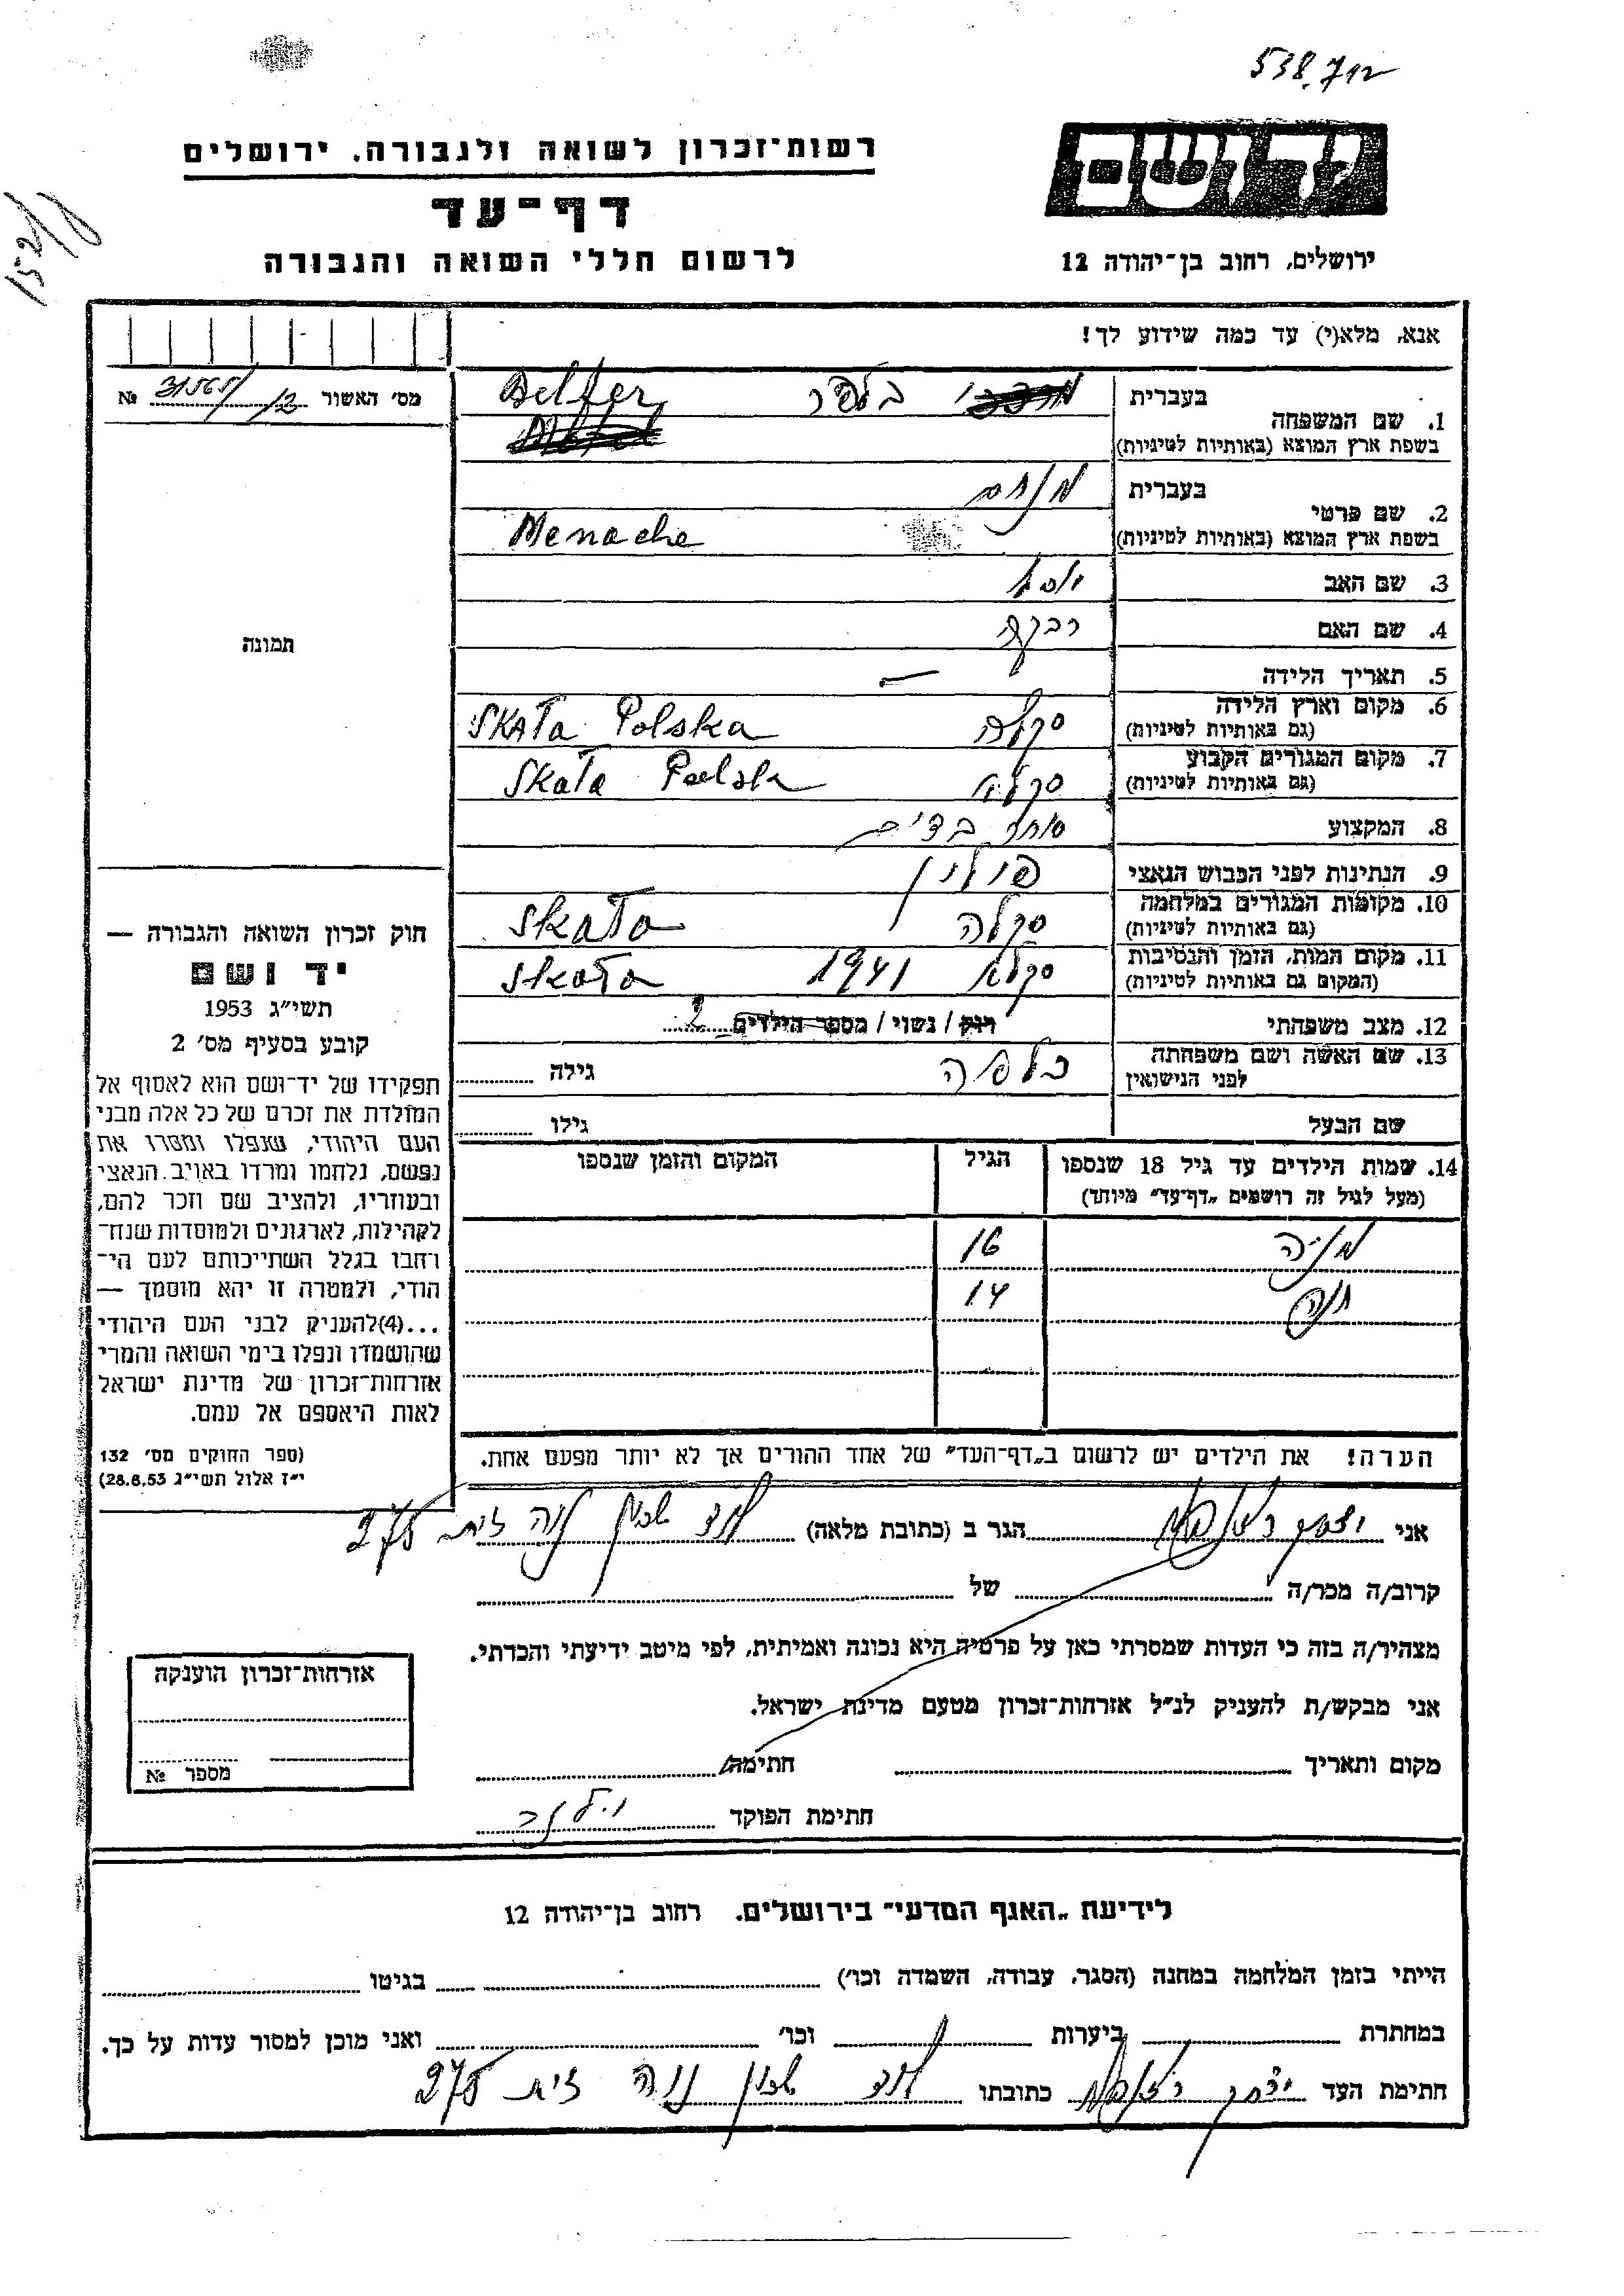 538.712
יד ושם
רשות־זכרון לשואה ולגבורה, ירושלים
דף־עד
לרשום חללי השואה והגבורה
ירושלים, רחוב בן־יהודה 12
אנא, מלא(י) עד כמה שידוע לך!
מס׳ האשור 31565/12 №
בעברית בלפר Belfer
1. שם המשפחה
בשפת ארץ המוצא (באותיות לטיניות)
בעברית מנחם
2. שם פרטי
בשפת ארץ המוצא (באותיות לטיניות) Menache
3. שם האב
4. שם האם רבקה
תמונה
5. תאריך הלידה —
6. מקום וארץ הלידה סקלה SKATa Polska
(גם באותיות לטיניות)
7. מקום המגורים הקבוע סקלה SKaTa Polska
(גם באותיות לטיניות)
8. המקצוע סוחר בדים
9. הנתינות לפני הכבוש הנאצי פולין
10. מקומות המגורים במלחמה סקלה SkaTa
(גם באותיות לטיניות)
11. מקום המות, הזמן והנסיבות סקלא 1941 SkaTa
(המקום גם באותיות לטיניות)
12. מצב משפחתי רוק / נשוי / מספר הילדים 2
13. שם האשה ושם משפחתה כלפה גילה
לפני הנישואין
שם הבעל גילו
14. שמות הילדים עד גיל 18 שנספו הגיל המקום והזמן שנספו
(מעל לגיל זה רושמים „דף־עד״ מיוחד)
מניה 16
חנה 14
הערה! את הילדים יש לרשום ב„דף־העד״ של אחד ההורים אך לא יותר מפעם אחת.
חוק זכרון השואה והגבורה —
יד ושם
תשי״ג 1953
קובע בסעיף מס׳ 2
תפקידו של יד־ושם הוא לאסוף אל
המולדת את זכרם של כל אלה מבני
העם היהודי, שנפלו ומסרו את
נפשם, נלחמו ומרדו באויב הנאצי
ובעוזריו, ולהציב שם וזכר להם,
לקהילות, לארגונים ולמוסדות שנח־
רחבו בגלל השתייכותם לעם הי־
הודי, ולמטרה זו יהא מוסמך —
...(4)להעניק לבני העם היהודי
שהושמדו ונפלו בימי השואה והמרי
אזרחות־זכרון של מדינת ישראל
לאות היאספם אל עמם.
(ספר החוקים מס׳ 132
י״ז אלול תשי״ג 28.8.53)
אני יצחק הגר ב (כתובת מלאה) לוד שכון נוה זית 275
קרוב/ה מכר/ה של
מצהיר/ה בזה כי העדות שמסרתי כאן על פרטיה היא נכונה ואמיתית, לפי מיטב ידיעתי והכרתי.
אני מבקש/ת להעניק לנ״ל אזרחות־זכרון מטעם מדינת ישראל.
מקום ותאריך חתימה
חתימת הפוקד
אזרחות־זכרון הוענקה
מספר №
לידיעת „האגף המדעי״ בירושלים, רחוב בן־יהודה 12
הייתי בזמן המלחמה במחנה (הסגר, עבודה, השמדה וכו׳) בגיטו
במחתרת ביערות וכו׳ ואני מוכן למסור עדות על כך.
חתימת העד יצחק כתובתו לוד שכון נוה זית 275